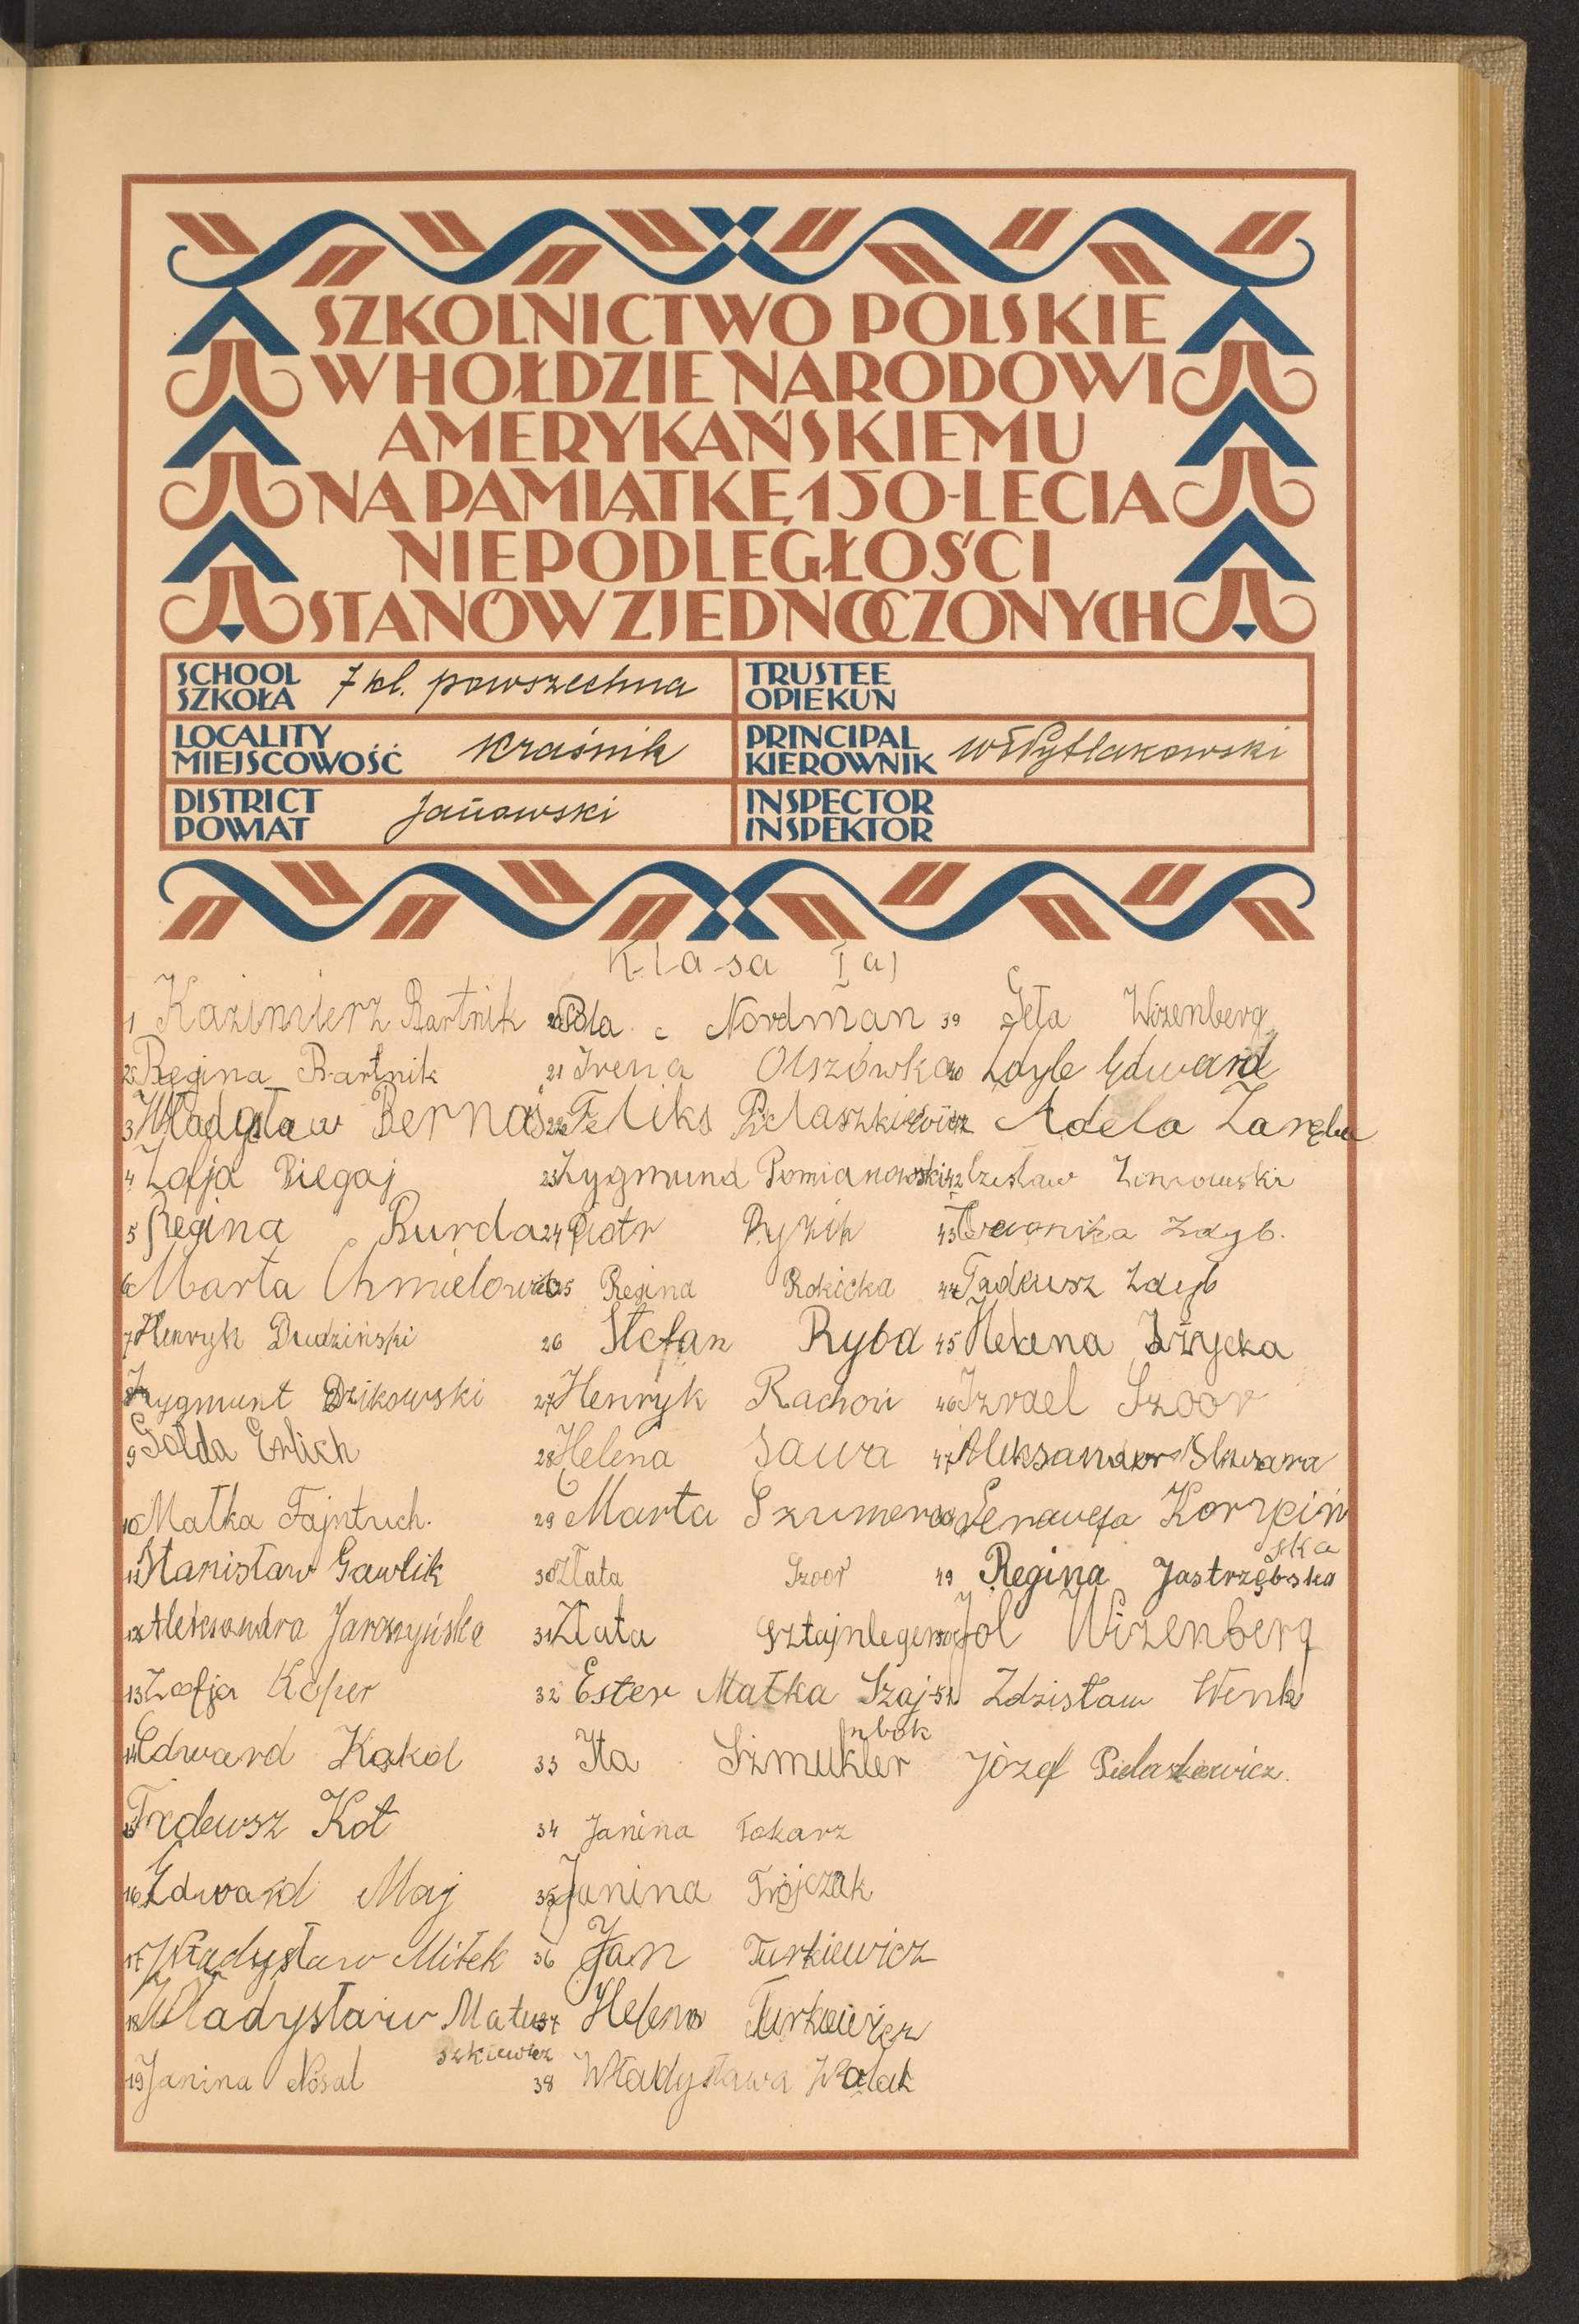 SZKOLNICTWO POLSKIE
W HOŁDZIE NARODOWI
AMERYKAŃSKIEMU
NA PAMIĄTKĘ 150-LECIA
NIEPODLEGŁOŚCI
STANÓW ZJEDNOCZONYCH
SCHOOL
SZKOŁA 7 kl. powszechna
TRUSTEE
OPIEKUN
LOCALITY
MIEJSCOWOŚĆ Kraśnik
PRINCIPAL
KIEROWNIK Wł Pytlakowski
DISTRICT
POWIAT Janowski
INSPECTOR
INSPEKTOR
Klasa I a)
1 Kazimierz Bartnik
2 Regina Bartnik
3 Władysław Bernaś
4 Zofja Biegaj
5 Regina Burda
6 Marta Chmielowska
7 Henryk Dudziński
8 Zygmunt Dzikowski
9 Golda Erlich
10 Małka Fajntuch.
11 Stanisław Gawlik
12 Aleksandra Jaroszyńska
13 Zofja Koper
14 Edward Kąkol
15 Tadeusz Kot
16 Edward Maj
17 Władysław Miłek
18 Władysław Matu
szkiewicz
19 Janina Nosal
20 Pola Nordman
21 Irena Olszówka
22 Feliks Pielaszkiewicz
23 Zygmund Pomianowski
24 Piotr Pyzik
25 Regina Rokicka
26 Stefan Ryba
27 Henryk Rachoń
28 Helena Sawa
29 Marta Szumera
30 Złata Szoor
31 Złata Sztajnleger
32 Ester Małka Szaj
nbok
33 Ita Szmukler
34 Janina Tokarz
35 Janina Trójczak
36 Jan Turkiewicz
37 Helena Turkiewicz
38 Władysława Walak
39 Geta Wizenberg
40 Zdyb Edward
Adela Zaręba
42 Czesław
43 Zdyb.
44 Tadeusz Zdyb
45 Helena Iżycka
46 Izrael Szoor
47 Aleksander
48 Genowefa Korzeiń
ska
49 Regina Jastrzębska
50 Jol Wizenberg
51 Zdzisław Wenk
Józef Pielaszkiewicz.